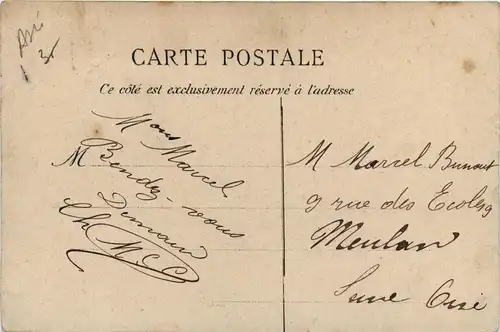 CARTE POSTALE
Ce côté est exclusivement réservé à l'adresse
Mons Marcel
M Rendez-vous
Demain
M Marcel Bunout
9 rue des Ecoles 9
Meulan
Seine Oise